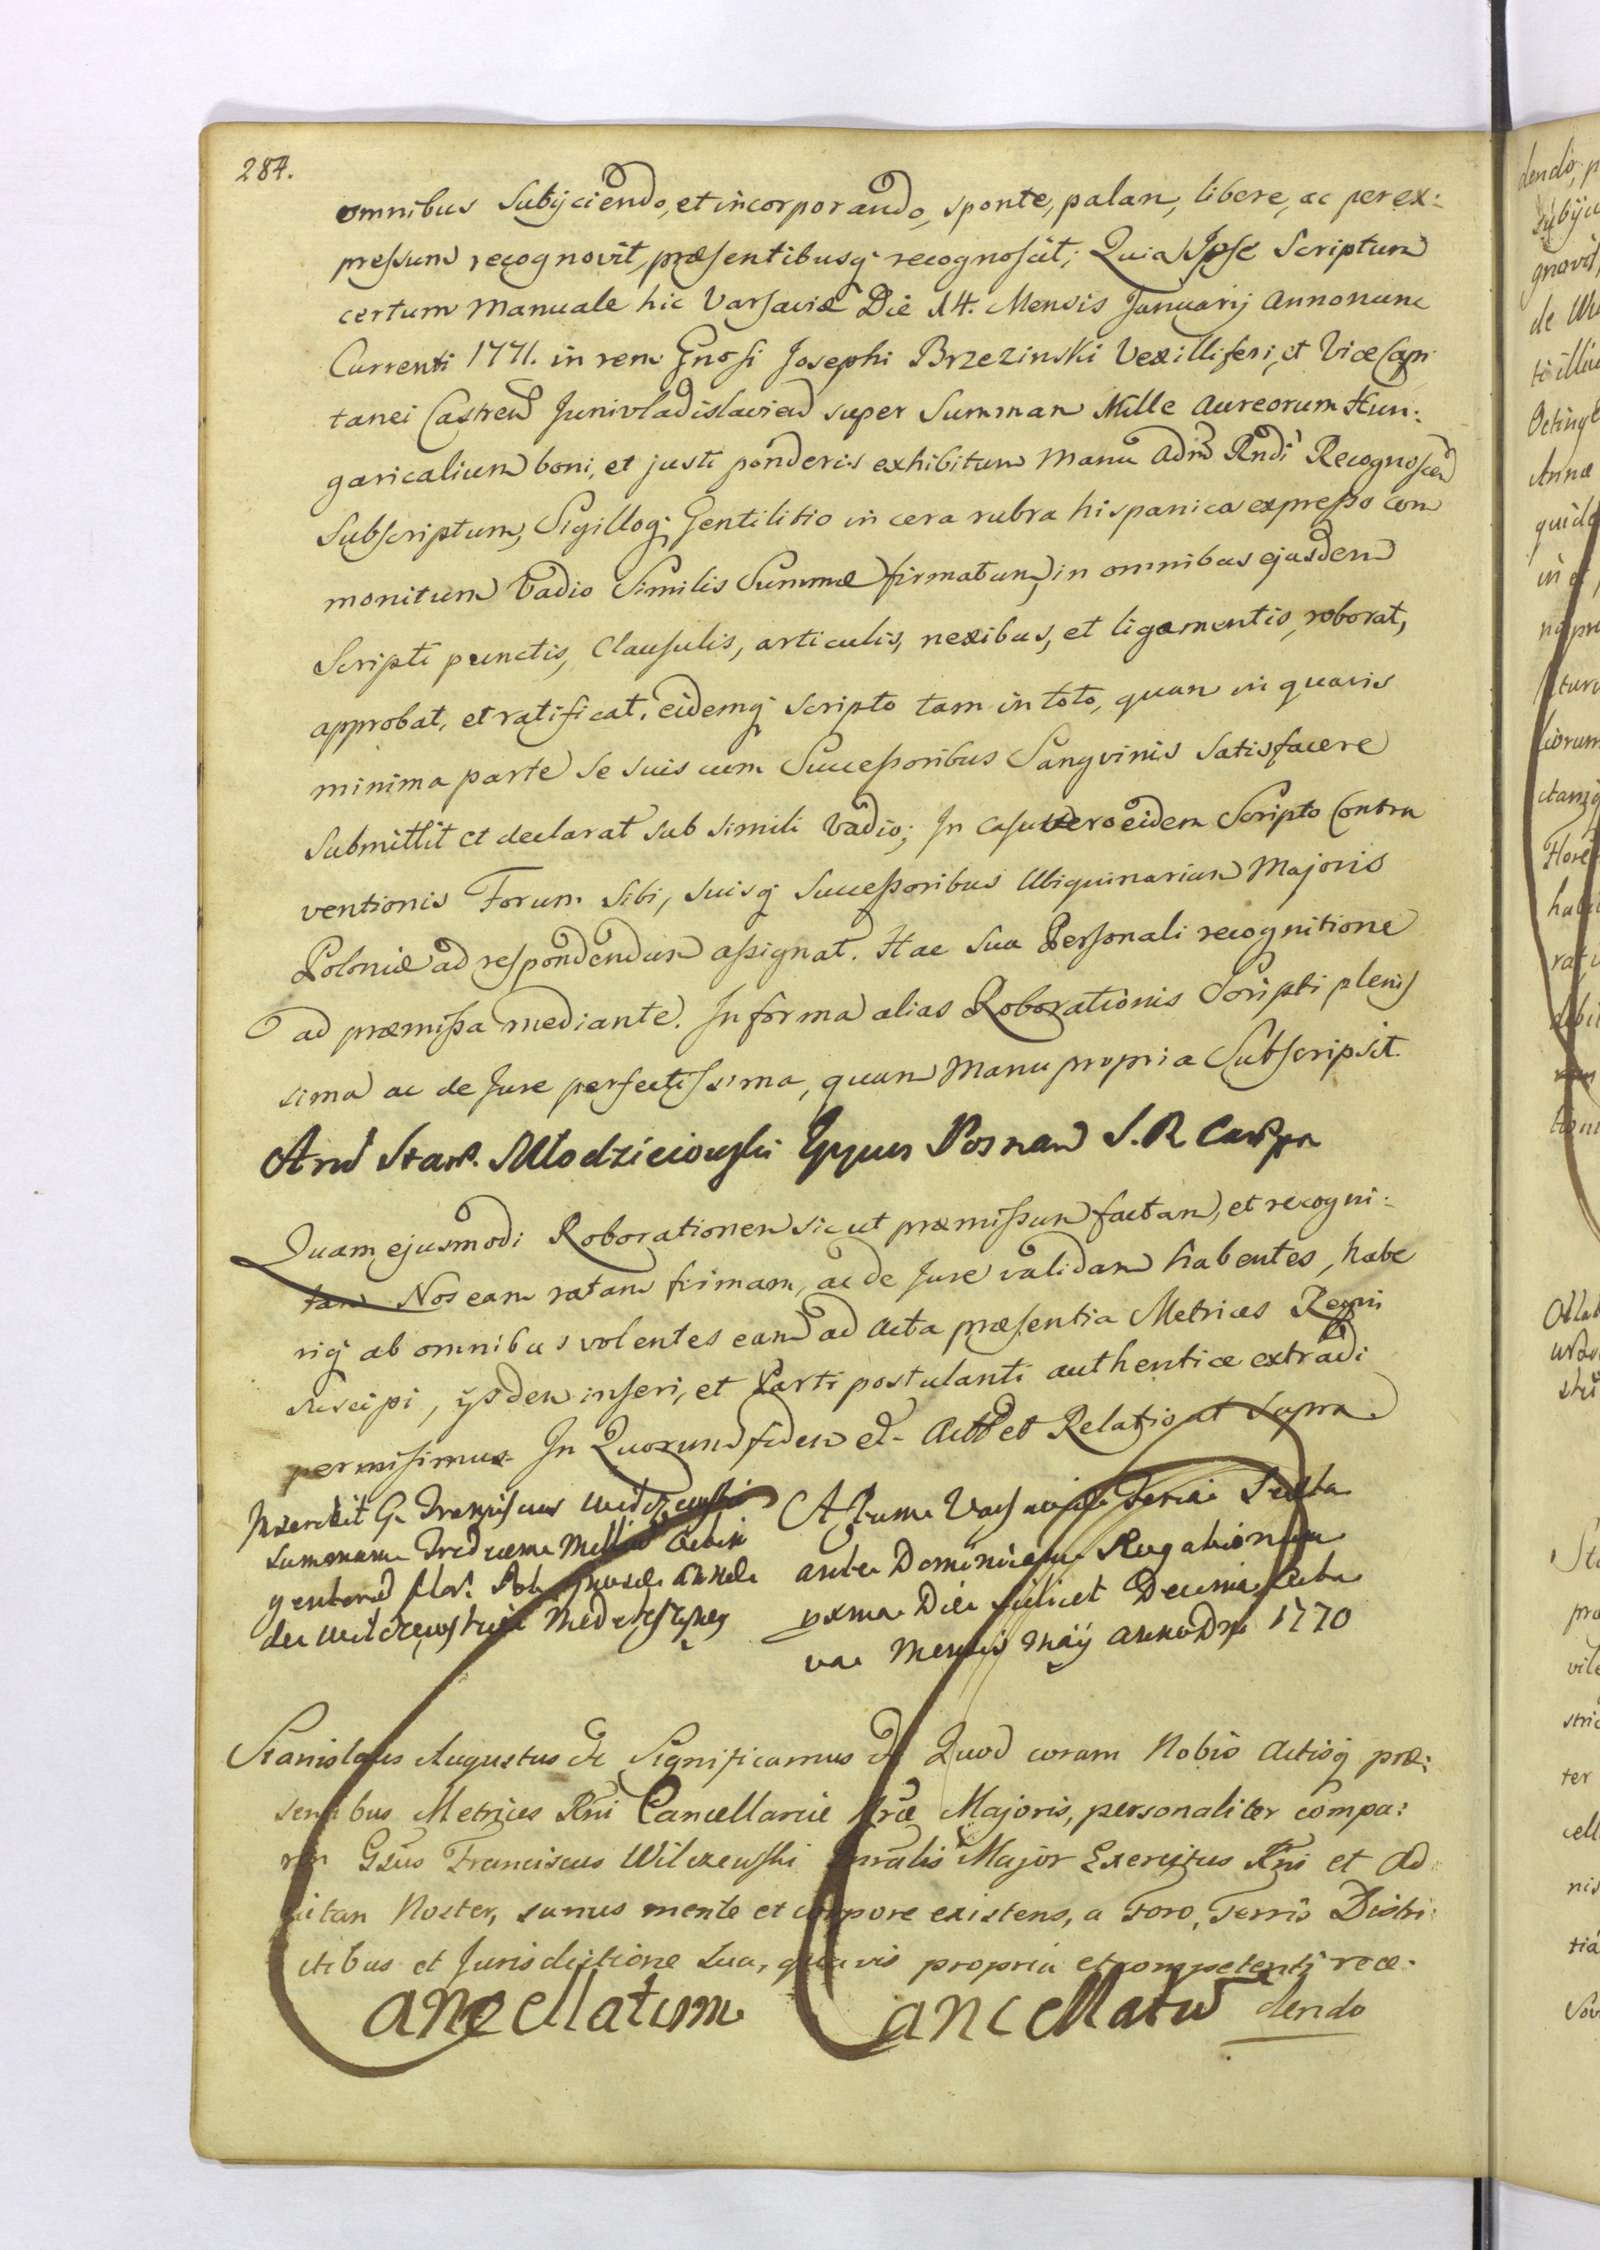 284.
omnibus Subijciendo, et incorporando, sponte, palam, libere, ac per ex:
pressum recognovit, præsentibusq; recognoscit; Quia Ipse Scriptum
certum Manuale hic Varsaviæ Die 14. Mensis Januarij Anno nunc
Currenti 1771. in rem Gnosi Josephi Brzezinski Vexilliferi, et Vice Capi
tanei Castren Junivladislavien super Summam Mille Aureorum Hun:
garicalium boni, et justi ponderis exhibitum Manu Adm Rndi Recognoscen
Subscriptum, Sigilloq; Gentilitio in cera rubra hispanica expresso com
monitum Vadio Similis Summæ firmatum, in omnibus ejusdem
Scripti punctis, Clausulis, articulis, nexibus, et ligamentis, roborat,
approbat, et ratificat. eidemq; scripto tam in toto, quam in quavis
minima parte Se suis cum Successoribus Sangvinis Satisfacere
Submittit et declarat sub simili Vadio; In casu vero eidem Scripto Contra
ventionis Forum Sibi, suisq; Successoribus Ubiquinarium Majoris
Poloniæ ad respondendum assignat. Hac Sua Personali recognitione
ad præmissa mediante. In forma alias Roborationis Scripti plenis
sima ac de Jure perfectissima, quam Manu propria Subscripsit.
And Stan. Młodzieiowski Eppus Posnan S. R Canp
Quam ejusmodi Roborationem sicut præmissum factam, et recogni:
tam Nos eam ratam firmam, ac de Jure validam habentes, habe
riq; ab omnibus volentes eand ad Acta præsentia Metrices Regni
suscipi, ijsdem inseri, et Parti postulanti authentice extradi
permisimus. In Quorum fidem et. Actt et Relatio ut supra
Inscribit G. Franciscus Wilczewski
Summam Tredecem Mille octin
gentorum flor. Pol.
de Wilczewskich
Actum Varsaviæ Feria Sexta
ante Dominicam Rogationum
pxma Die scilicet Decima octa
va Mensis Maij Anno Dni 1770
Stanislaus Augustus etc Significamus etc Quod coram Nobis Actisq; præ:
sentibus Metrices Rni Cancellariæ Nræ Majoris, personaliter compa:
rens Gsus Franciscus Wilczewski Gnralis Major Exercitus Rni et Ad
jutan Noster, sanus mente et corpore existens, a Foro, Terris Distri:
ctibus et Jurisdictione Sua, quavis propria et competenti rece.
dendo
Cancellatum Cancellatu